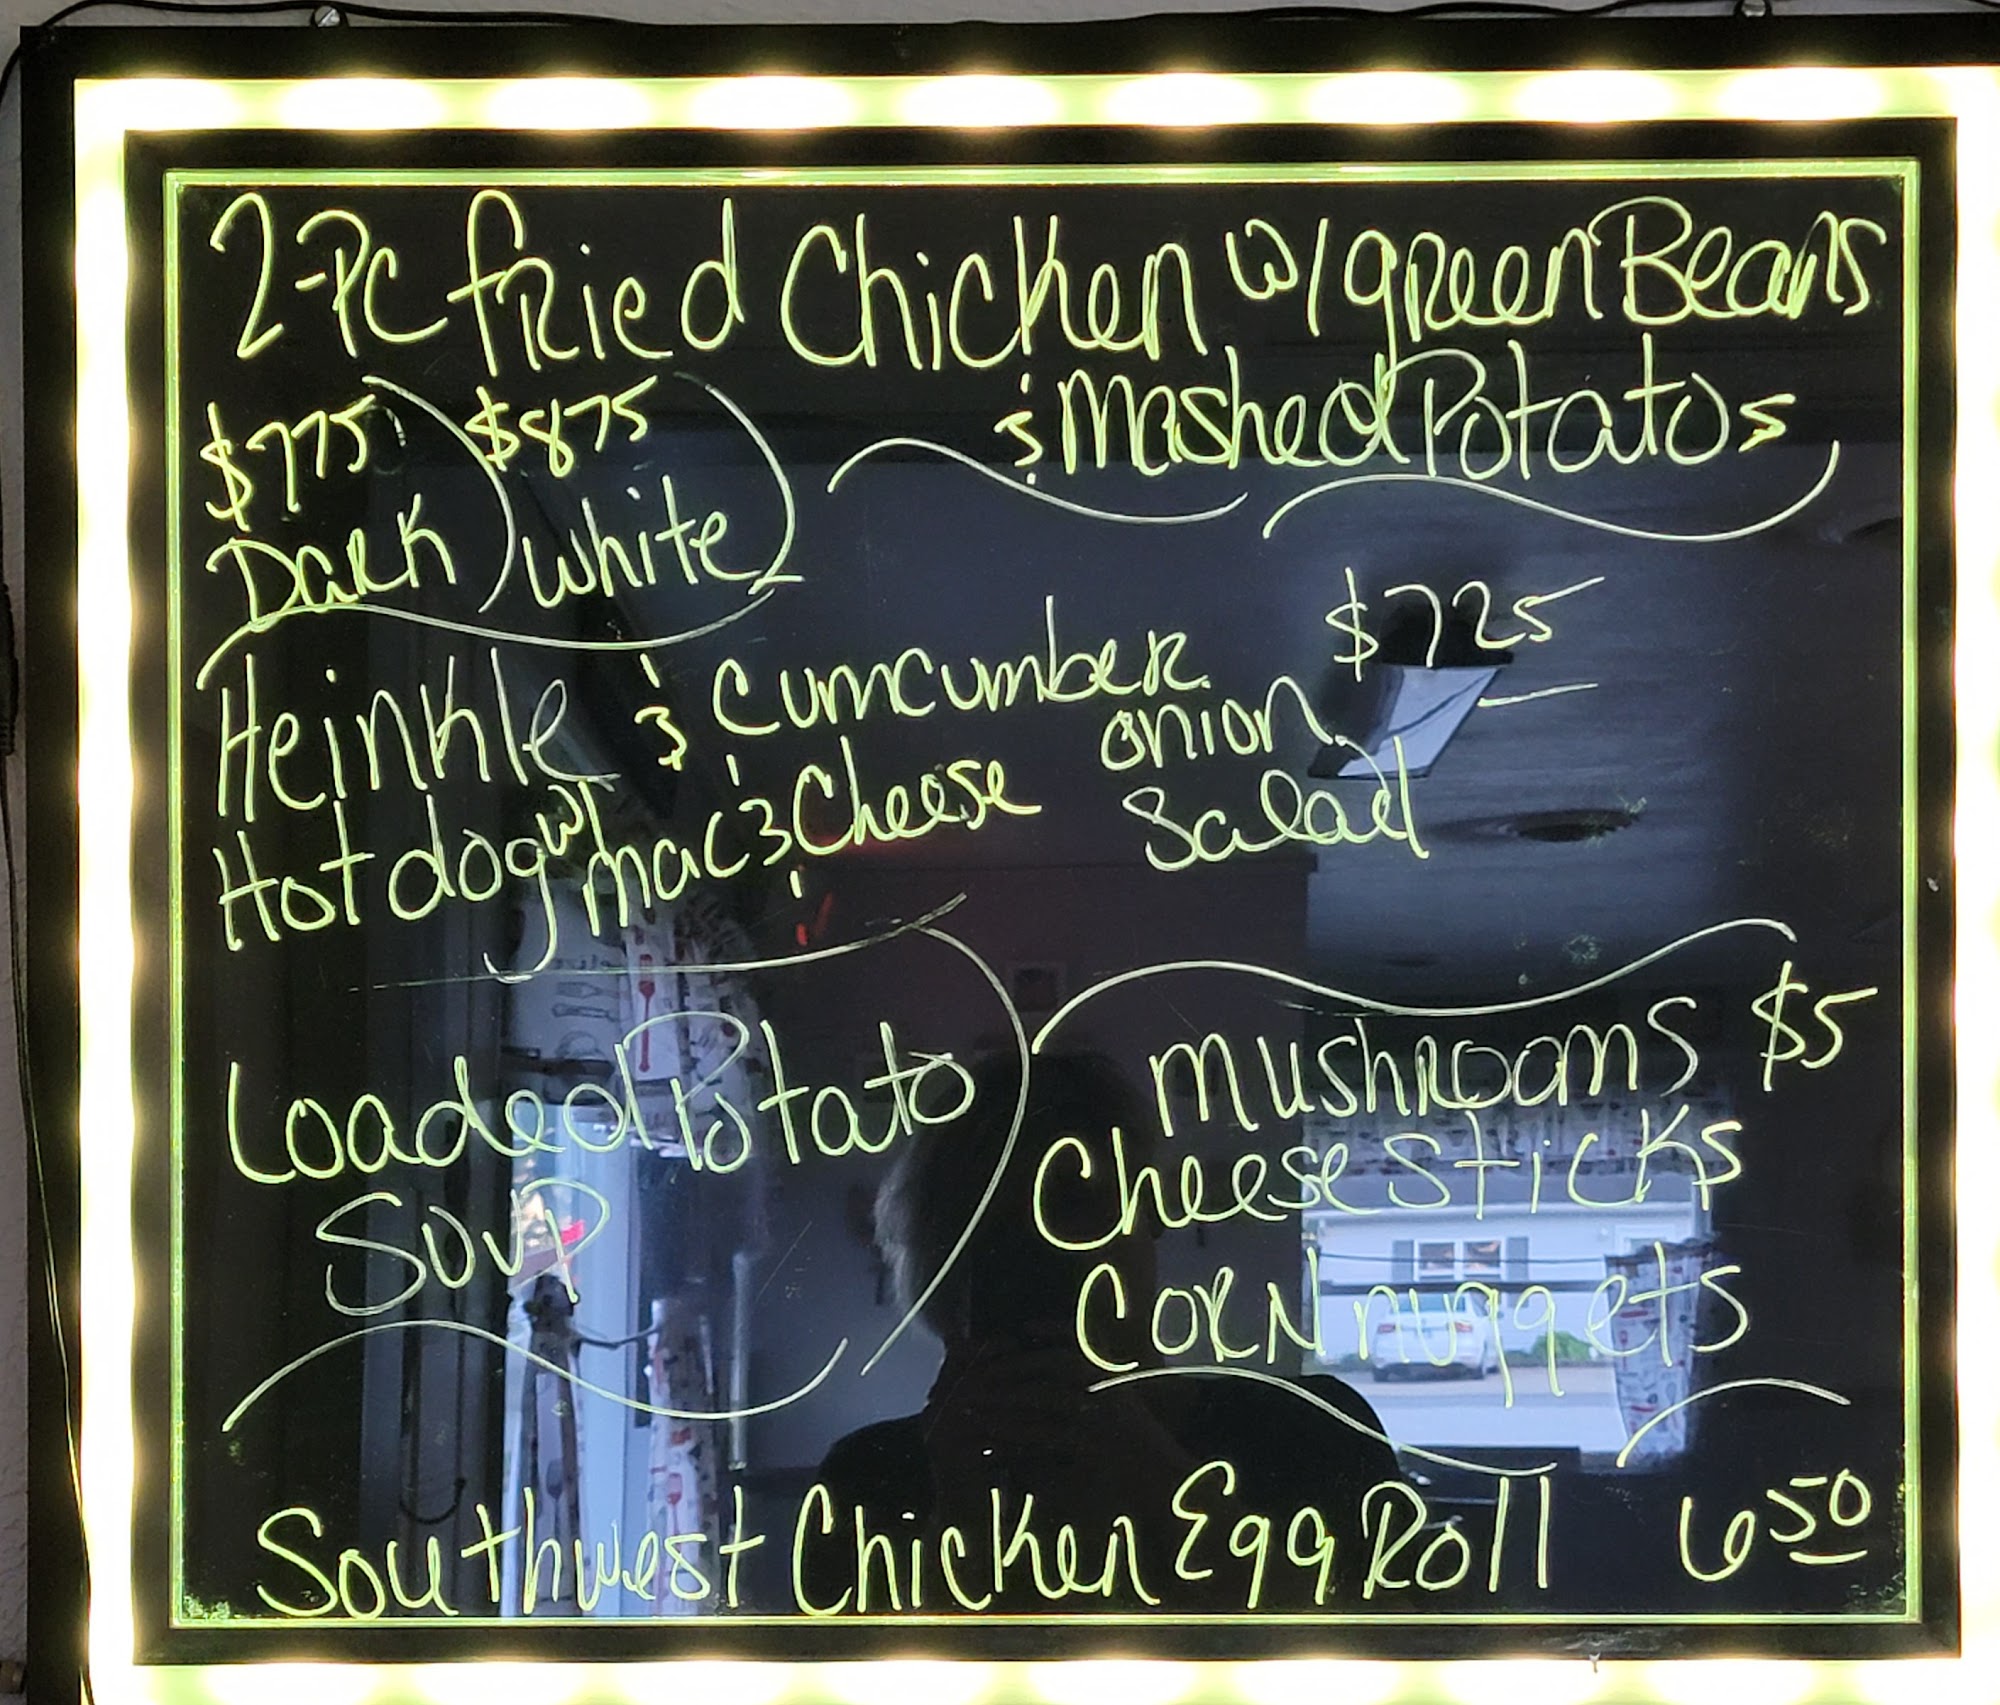 2-PC fried Chicken w/green Beans
& Mashed Potatos
$775 $875
Dark White
Heinkle & Cumcumber $725
Hot dog w/ mac & Cheese onion
Salad
Loaded Potato
Soup
Mushrooms $5
Cheese Sticks
Corn nuggets
Southwest Chicken Egg Roll 650